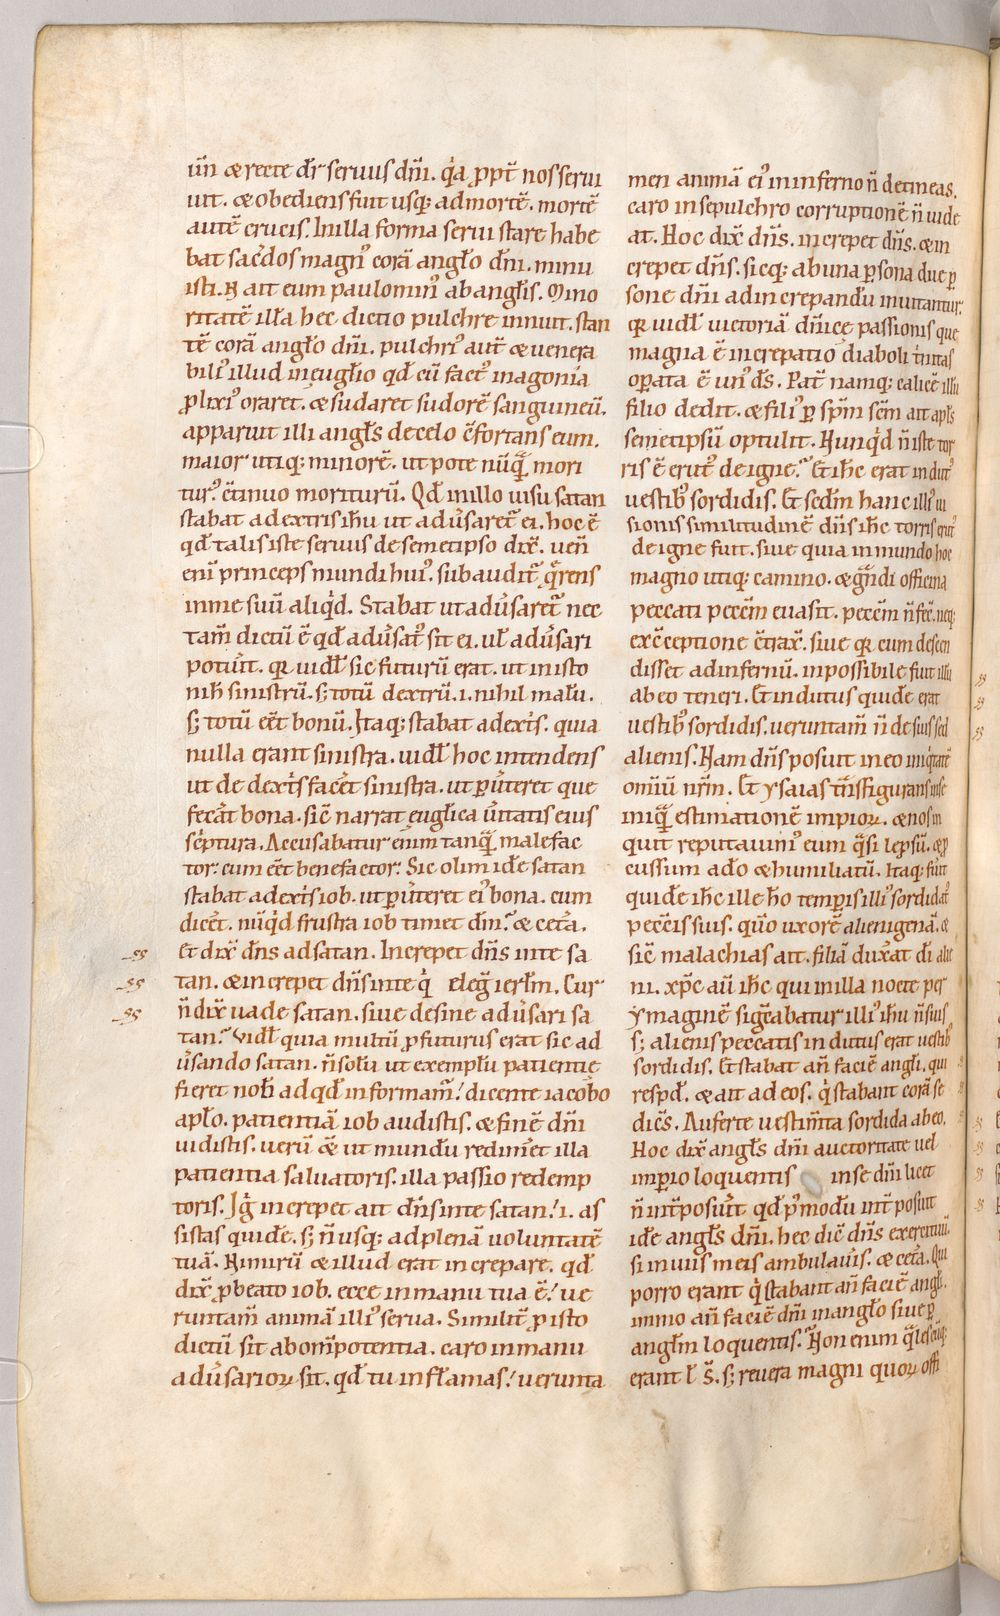 uñ ⁊ recte dr̄ seruus dñi. q̇a ꝓpt̄ nos serui
uit. ⁊ obediens fuit usq; ad mortē. mortē
autē crucis. In illa forma serui stare habe
bat sac̄dos magn᷒ corā angl̄o dñi. minu
isti. H̄ ait eum paulomin᷒ ab angl̄is. Mino
ritatē ill̄a hec dictio pulchre innuit. stan
tē corā angl̄o dñi. pulchri᷒ aut̄ ⁊ uenera
bili᷒ illud in eugl̄io qd̄ cū fact᷒ in agonia
ꝓlixi᷒ oraret. ⁊ sudaret sudorē sanguineū.
apparuit illi angl̄s de celo c̄fortans eum.
maior utiq; minorē. ut pote nūq̄ mori
tur᷒. c̄tinuo moriturū. Qd̄ in illo uisu satan
stabat a dextris ih̄u ut adūsaret᷒ ei. hoc ē
qd̄ talis iste seruus de semetipso dix̄. ueñ
eni᷒ princeps mundi hui᷒. subaudit᷒ q̄rens
in me suū aliq̇d. Stabat ut adūsaret᷒ nec
tam̄ dictū ē qd̄ adūsat᷒ sit ei. ul̄ adūsari
potuit̄. qr uidl̄ sic futurū erat. ut in isto
nih̄ sinistrū. s; totū dextrū .i. nihil malū.
s; totū eēt bonū. Itaq; stabat a dext̄is. quia
nulla erant sinistra. uidl̄ hoc intendens
ut de dext̄is fac̄et sinistra. ut ꝑūteret que
fec̄at bona. sic̄ narrat euglica ūitatis eius
sc̄ptura. Accusabatur enim tanq̄ malefac
tor: cum eēt benefactor. Sic olim idē satan
stabat a dext̄is iob. ut ꝑūteret ei᷒ bona. cum
dicēt. nūq̇d frustra iob timet dm̄? ⁊ cetā.
Et dix̄ dñs ad satan. Increpet dñs in te sa
tan. ⁊ increpet dñs in te q̇ eleḡ ierl̄m. Cur
ñ dix̄ uade satan. siue desine adūsari sa
tan? Vidl̄ quia multū ꝓfuturus erat sic ad
ūsando satan. ñ solū ut exemplū patientię
fieret nob̄ ad qd̄ informam᷒! dicente iacobo
apl̄o. patientiā iob audistis. ⁊ finē dñi
uidistis. uerū ⁊ ut mundū redim̄et illa
patientia saluatoris. illa passio redemp
toris. Iḡ increpet ait dñs in te satan! .i. as
sistas quidē. s; ñ usq; ad plenā uoluntatē
tuā. Nimirū ⁊ illud erat increpare. qd̄
dix̄ ꝓ beato iob. ecce in manu tua ē! ue
runtam̄ animā illi᷒ serua. Similit̄ ꝓ isto
dictū sit ab om̄ipotentia. caro in manu
adūsarioꝝ sit. qd̄ tu infl̄amas! uerunta
men animā ei᷒ in inferno ñ detineas.
caro in sepulchro corruptionē ñ uide
at. Hoc dix̄ dñs. increpet dñs. ⁊ in
crepet dñs. sicq; ab una ꝑsona due ꝑ
sone dñi ad increpandū inuitantur.
qr uidl̄ uictoriā dñicę passionis que
magna ē increpatio diaboli ṫnitas
oꝑata ē un᷒ dˢ. Pat̄ namq; calicē illū
filio dedit. ⁊ fili᷒ ꝑ sp̄m sc̄m ait apl̄s
semetipsū optulit. Nunq̇d ñ iste tor
ris ē erut᷒ de igne? Et ih̄c erat indut᷒
uestib᷒ sordidis. Et scdm̄ hanc illi᷒ ui
sionis similitudinē dñs ih̄c torris erut᷒
de igne fuit. siue quia in mundo hoc
magno utiq; camino. ⁊ grandi officina
peccati pecc̄m euasit. pecc̄m ñ fec̄. neq;
ex c̄ceptione c̄trax̄. siue qr cum descen
disset ad infernū. inpossibile fuit illū
ab eo teneri. Et indutus quidē erat
uestib᷒ sordidis. ueruntam̄ ñ de suis sed
alienis. Nam dñs posuit in eo iniq̇tatē
om̄iū nr̄m. Et ysaias t̄nsfigurans in se
iniq̄ estimationē impioꝝ. ⁊ nos in
quit reputauim᷒ eum q̄si leprosū. ⁊ ꝑ
cussum a dō ⁊ humiliatū. Itaq; fuit
quidē ih̄c ille hō temꝑis illi᷒ sordidat᷒
pecc̄is suis. quō uxorē alienigenā. ⁊
sic̄ malachias ait. filiā duxat dī alie
ni. xp̄c aū ih̄c qui in illa nocte per
ymaginē sig̃eabatur illi᷒ ih̄u ñ suis
s; alienis peccatis indutus erat uestib᷒
sordidis. Et stabat añ faciē angl̄i. qui
respd̄. ⁊ ait ad eos. q̇ stabant corā se
dicēs. Auferte uestim̄ta sordida ab eo.
Hoc dix̄ angl̄s dñi auctoritate uel
imꝑio loquentis in se dñi licet
ñ int̄posuit̄ qd̄ p᷒ modū int̄posuit
idē angl̄s dñi. hec dic̄ dñs exercituū.
si in uiis meis ambulauīs. ⁊ cetā. Qui
porro erant q̇ stabant añ faciē angl̄i.
immo añ faciē dñi in angl̄o siue ꝑ
angl̄m loquentis? Non enim q̄lescūq;
erant l̄ s̄. s; reuera magni quoꝝ offi